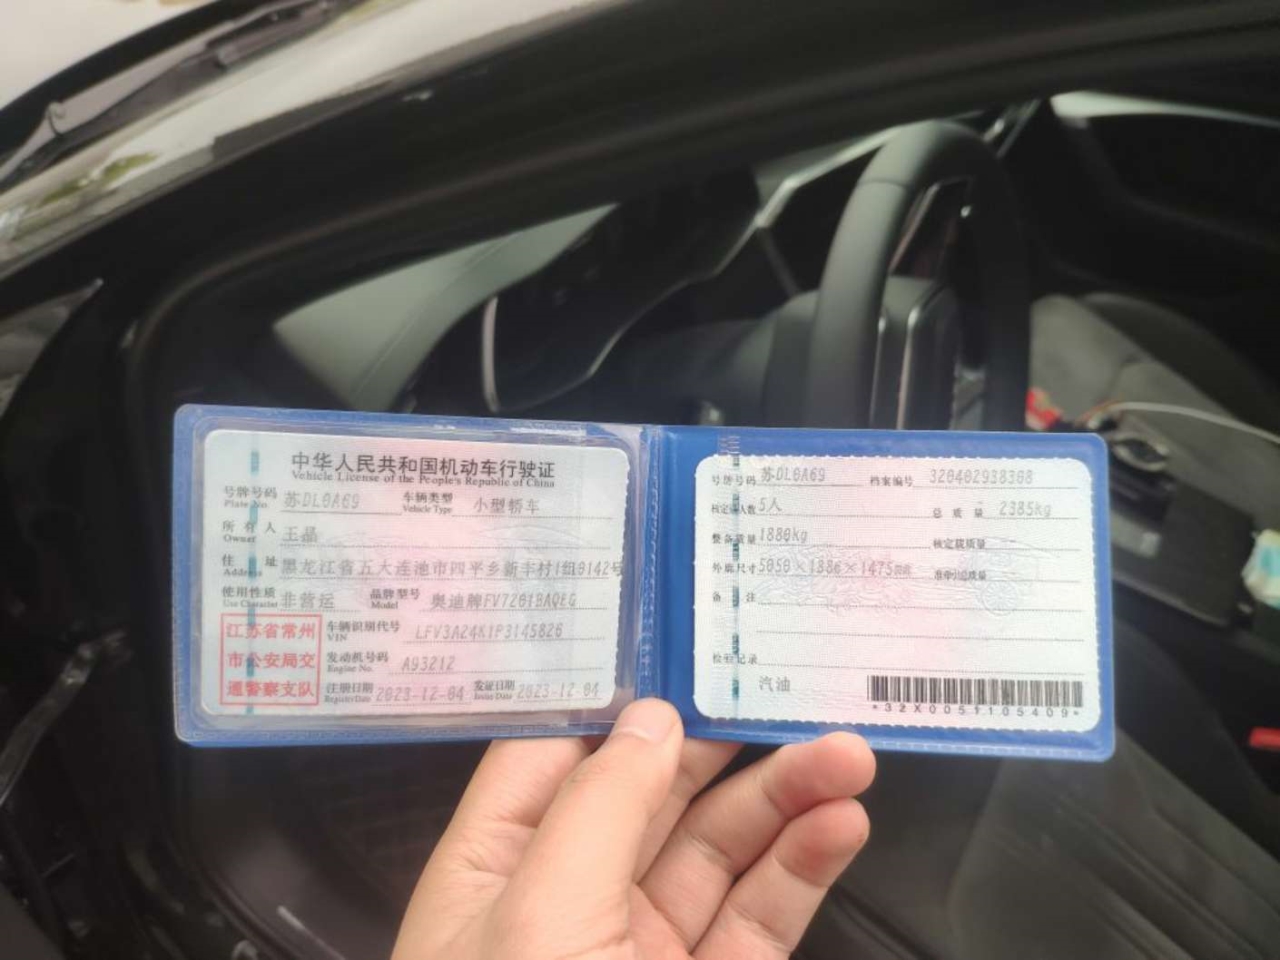 中华人民共和国机动车行驶证
Vehicle License of the People's Republic of China
号牌号码 苏DL0A69 车辆类型 小型轿车
Plate No. Vehicle Type
所有人 王晶
Owner
住址 黑龙江省五大连池市四平乡新丰村1组0142号
Address
使用性质 非营运 品牌型号 奥迪牌FV7201BAQEG
Use Character Model
江苏省常州
市公安局交
通警察支队
车辆识别代号 LFV3A24K1P3145826
VIN
发动机号码 A93212
Engine No.
注册日期 2023-12-04 发证日期 2023-12-04
Register Date Issue Date
号牌号码 苏DL0A69 档案编号 320402938308
核定载人数 5人 总质量 2385kg
整备质量 1880kg 核定载质量
外廓尺寸 5050×1886×1475mm 准牵引总质量
备注
检验记录
汽油
*32X0057105409*